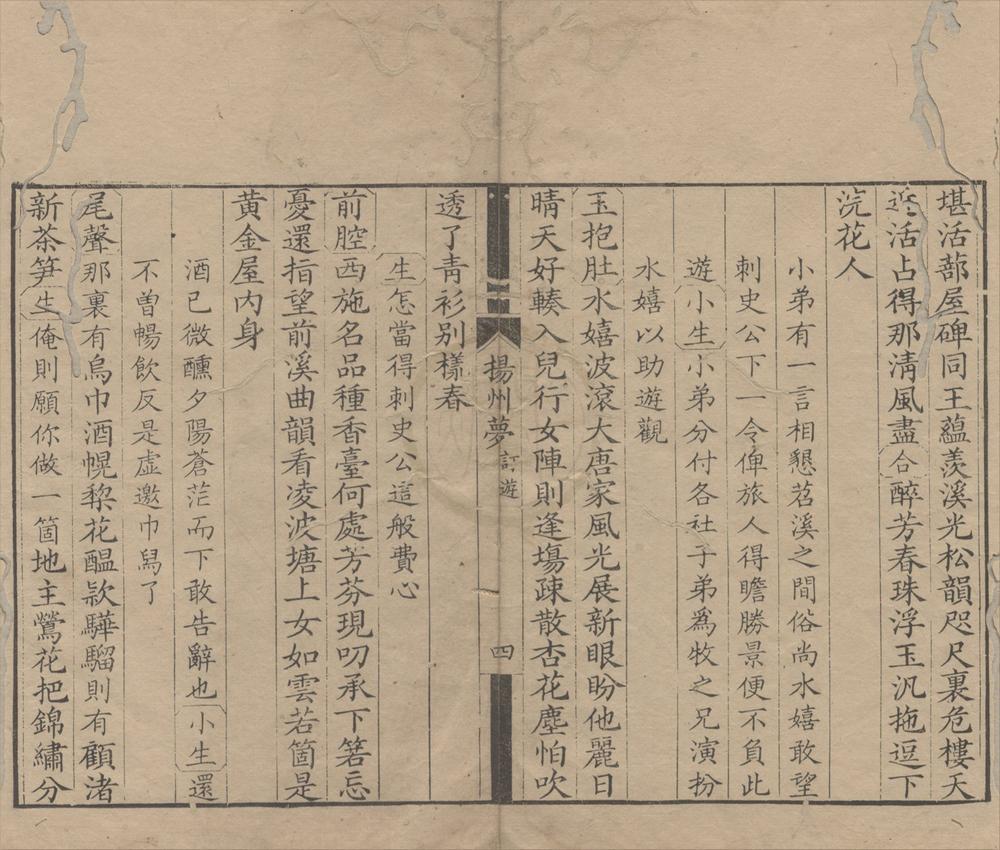 堪活蔀屋碑同王蘊羨溪光松韻咫尺裏危樓天
近活占得那淸風盡合醉芳春珠浮玉汎拖逗下
浣花人
小弟有一言相懇苕溪之間俗尚水嬉敢望
刺史公下一令俾旅人得瞻勝景便不負此
遊小生小弟分付各社子弟爲牧之兄演扮
水嬉以助遊觀
玉抱肚水嬉波滾大唐家風光展新眼盼他麗日
晴天好輳入兒行女陣則逢塲疎散杏花塵怕吹
揚州夢
訂遊
四
透了靑衫别樣春
生怎當得刺史公這般費心
前腔西施名品種香臺何處芳芬現叨承下箬忘
憂還指望前溪曲韻看凌波塘上女如雲若箇是
黄金屋内身
酒已微醺夕陽蒼茫而下敢告辭也小生還
不曾暢飮反是虛邀巾舄了
尾聲那裏有烏巾酒幌棃花醖欵驊騮則有顧渚
新茶笋生俺則願你做一箇地主鶯花把錦繡分